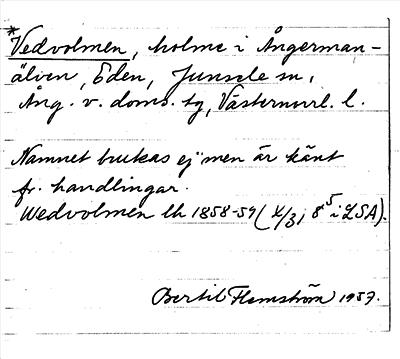 *Vedvolmen, holme i Ångerman-
älven, Eden, Junsele sn,
Ång. v. doms. tg, Västernorrl. l.
Namnet brukas ej men är känt
fr. handlingar.
Wedvolmen lh 1858-59 (X/3; 8⁵ i LSA).
Bertil Flemström 1957.